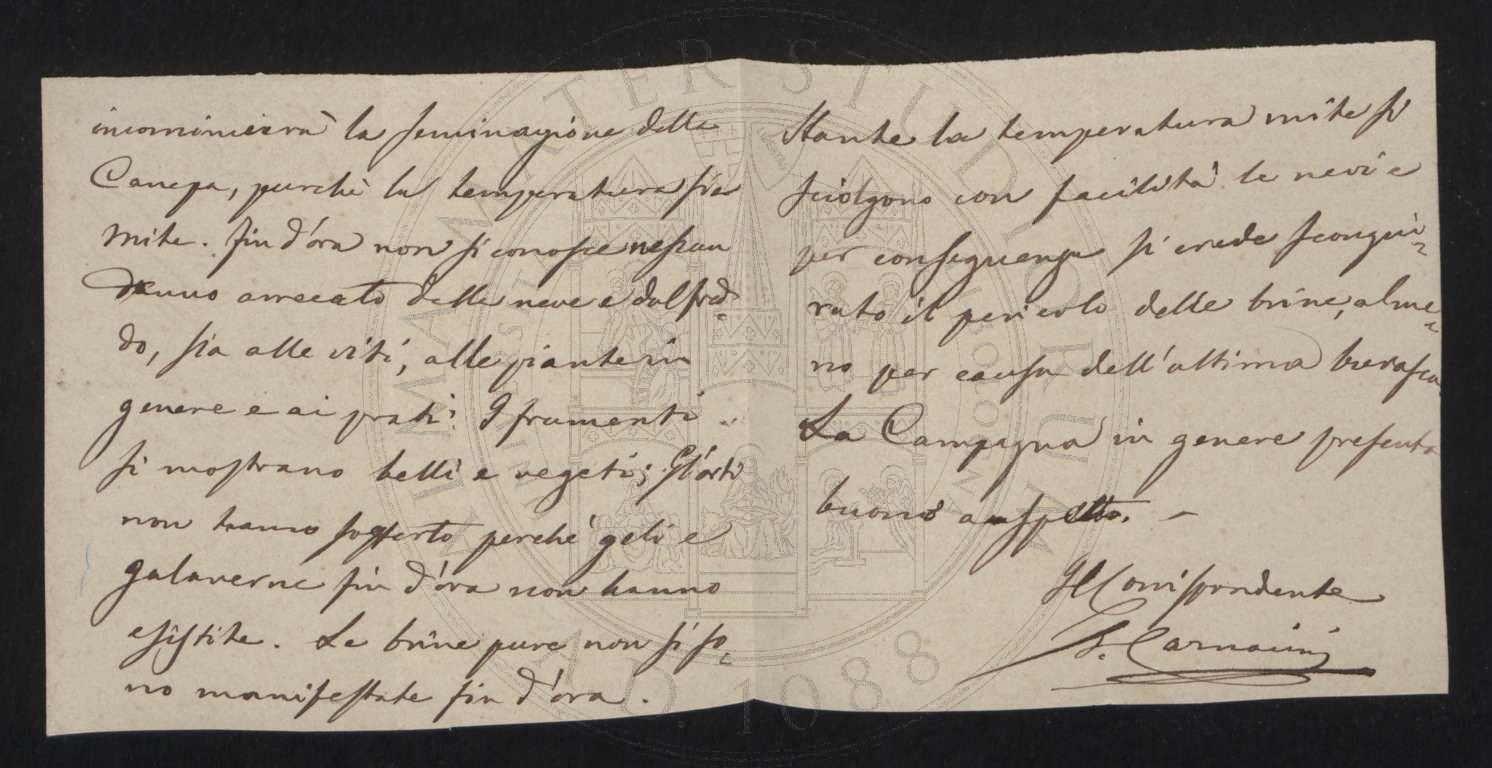 incomincierà la seminagione della
Canepa, purchè la temperatura sia
mite. Fin d'ora non si conosce nessun
danno arrecato dalla neve e dal fred-
do, sia alle viti, alle piante in
genere e ai prati. I frumenti
si mostrano belli e vegeti; Gl'orti
non hanno sofferto perchè geli e
galaverne fin d'ora non hanno
esistite. Le brine pure non si so-
no manifestate fin d'ora.
Stante la temperatura mite si
sciolgono con facilità le nevi e
per conseguenza si crede scongiu-
rato il pericolo delle brine, alme-
no per causa dell'ultima burasca.
La Campagna in genere presenta
buono aspetto. —
Il Corrispondente
ALMA MATER STUDIORUM
A.D. 1088